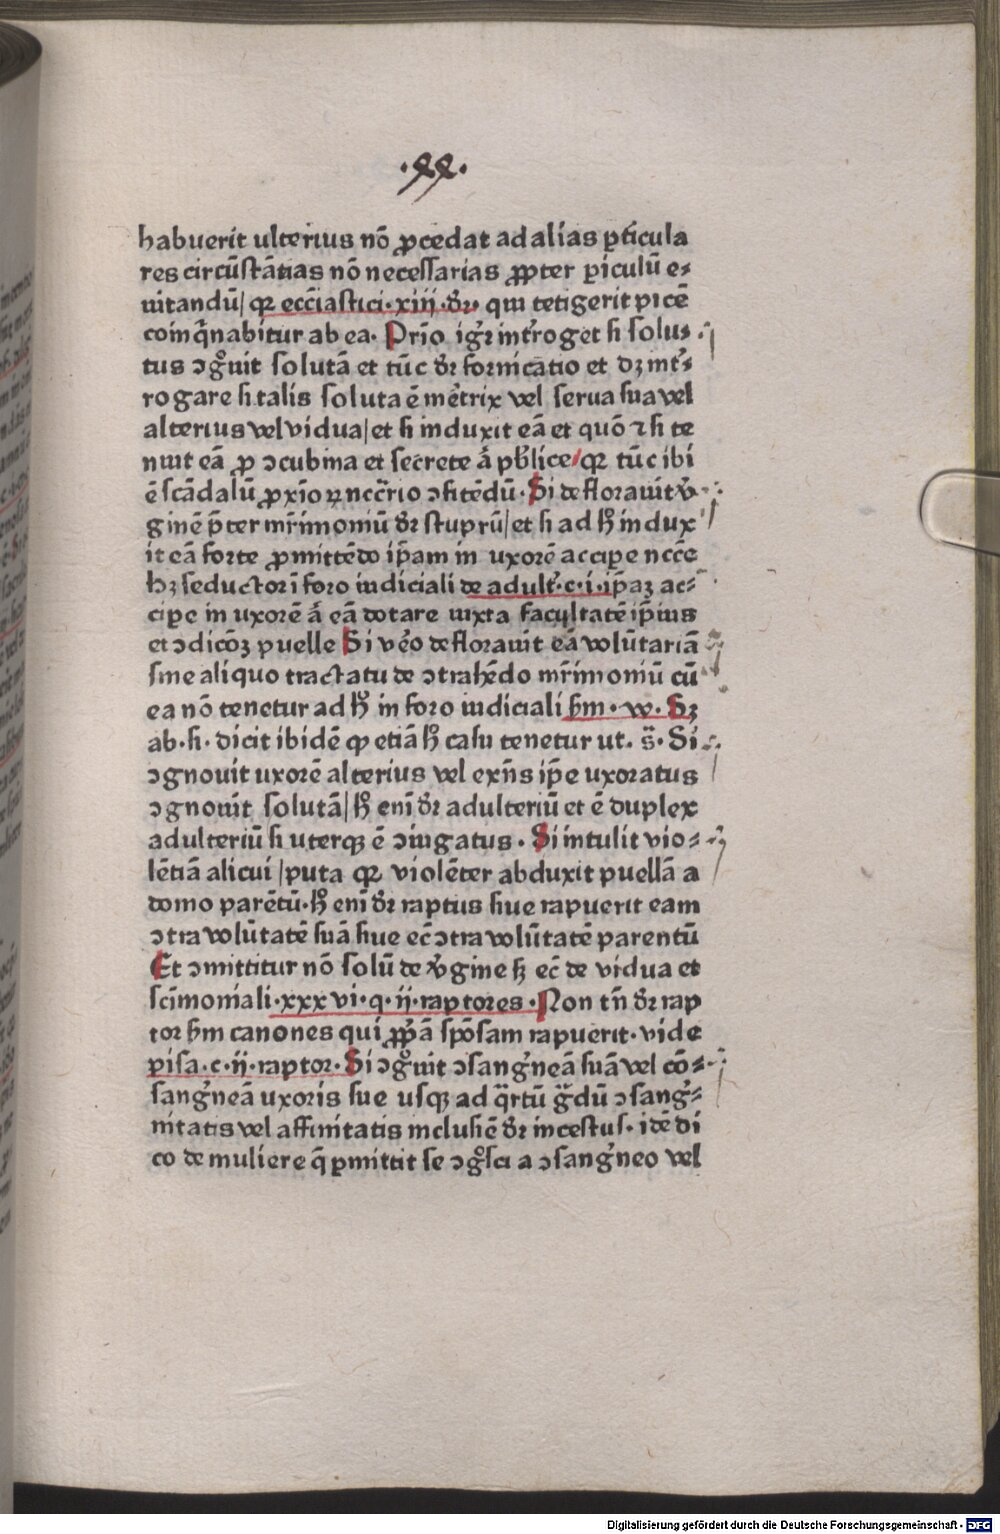 .xx.
habuerit ulterius nō ꝓcedat ad alias ꝑticula
res circūstātias nō necessarias ꝓpter ꝑiculū e⸗
uitandū/qꝛ ecc̄iastici.xiij.dr̄. qui tetigerit picē
coinq̄nabitur ab ea. Prīo igr̄ intr̄roget si solus⸗
tus ↄgͦuit solutā et tūc dr̄ fornicatio et dꝫ intr̄⸗
rogare si talis soluta ē mētrix vel serua sua vel
alterius vel vidua/et si induxit eā et quō ⁊ si te
nuit eā ꝓ ↄcubina et secrete ā pb̄lice/qꝛ tūc ibi
ē scādalū ꝓxīo ꝝ nccr̄io ↄfitēdū. Si deflorauit v̄⸗
ginē p̄ter mr̄imoniū dr̄ stuprū/et si ad hͦ indux
it eā forte ꝓmittēdo ip̄am in uxorē accipe nccē
hꝫ seductor ī foro iudiciali de adult̄.c.i.ip̄aꝫ ac⸗
cipe in uxorē ā eā dotare iuxta facultatē ip̄ius
et ↄdicōꝫ puelle Si vēo deflorauit eā volūtariā
sine aliquo tractatu de ↄtrahēdo mr̄imoniū cū
ea nō tenetur ad hͦ in foro iudiciali ẜm.w. Sꝫ
ab.si. dicit ibidē ꝙ etiā hͦ casu tenetur ut. s̄. Si
ↄgnouit uxorē alterius vel exn̄s ip̄e uxoratus
ↄgnouit solutā/hͦ enī dr̄ adulteriū et ē duplex
adulteriū si uterqꝫ ē ↄiugatus. Si intulit vio⸗
lētiā alicui/puta qꝛ violēter abduxit puellā a
domo parētū.hͦ enī dr̄ raptus siue rapuerit eam
ↄtra volūtatē suā siue ec̄ ↄtra volūtatē parentū
Et ↄmittitur nō solū de v̄gine sꝫ ec̄ de vidua et
scīmoniali.xxxvi.q.ij.raptores. Non tn̄ dr̄ rap
tor ẜm canones qui ꝓp̄ā spōsam rapuerit. vide
pisa.c.ij.raptor. Si ↄgͦuit ↄsangͥneā suā vel cō⸗
sangͥneā uxoris sue usqꝫ ad qᷓrtū gᷓdū ↄsangͥ⸗
nitatis vel affinitatis inclusiē dr̄ incestus. idē di
co de muliere q̄ ꝑmittit se ↄgͦsci a ↄsangͥneo vel
Digitalisierung gefördert durch die Deutsche Forschungsgemeinschaft - DFG